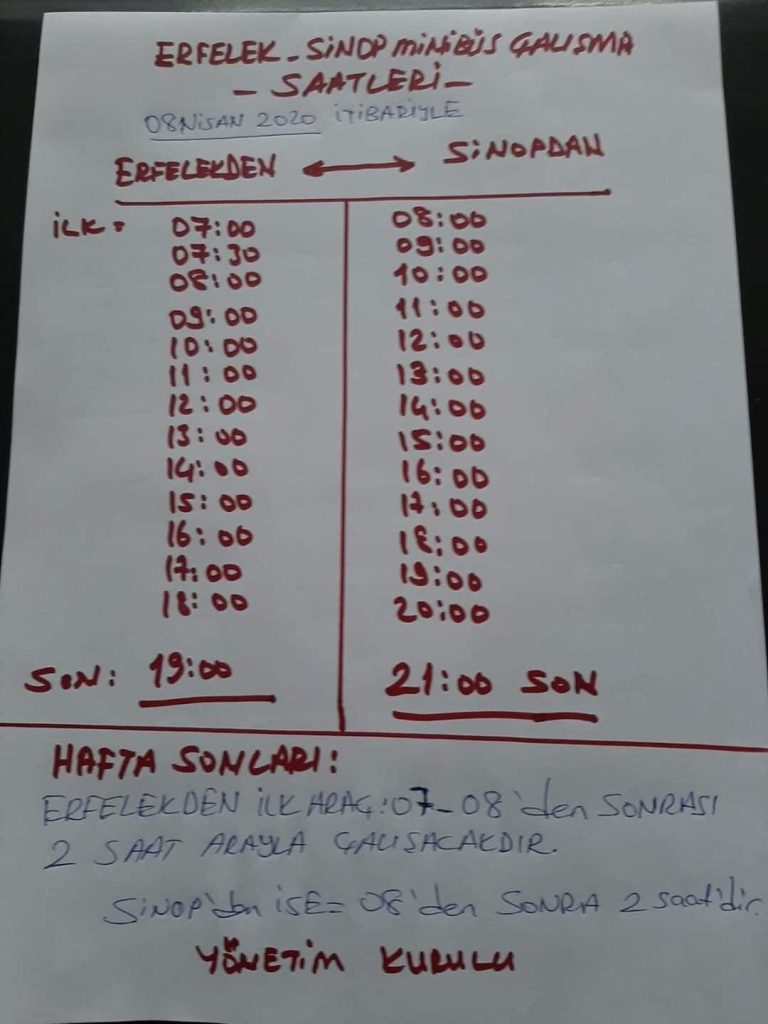 ERFELEK - SİNOP MİNİBÜS ÇALIŞMA
- SAATLERİ -
08 NİSAN 2020 İTİBARİYLE
ERFELEKDEN ↔ SİNOPDAN
İLK = 07:00 08:00
07:30 09:00
08:00 10:00
09:00 11:00
10:00 12:00
11:00 13:00
12:00 14:00
13:00 15:00
14:00 16:00
15:00 17:00
16:00 18:00
17:00 19:00
18:00 20:00
SON: 19:00 21:00 SON
HAFTA SONLARI:
ERFELEKDEN İLK ARAÇ: 07-08'den SONRASI
2 SAAT ARAYLA ÇALIŞACAKDIR.
SİNOP'dan İSE = 08'den SONRA 2 saat'dir.
YÖNETİM KURULU